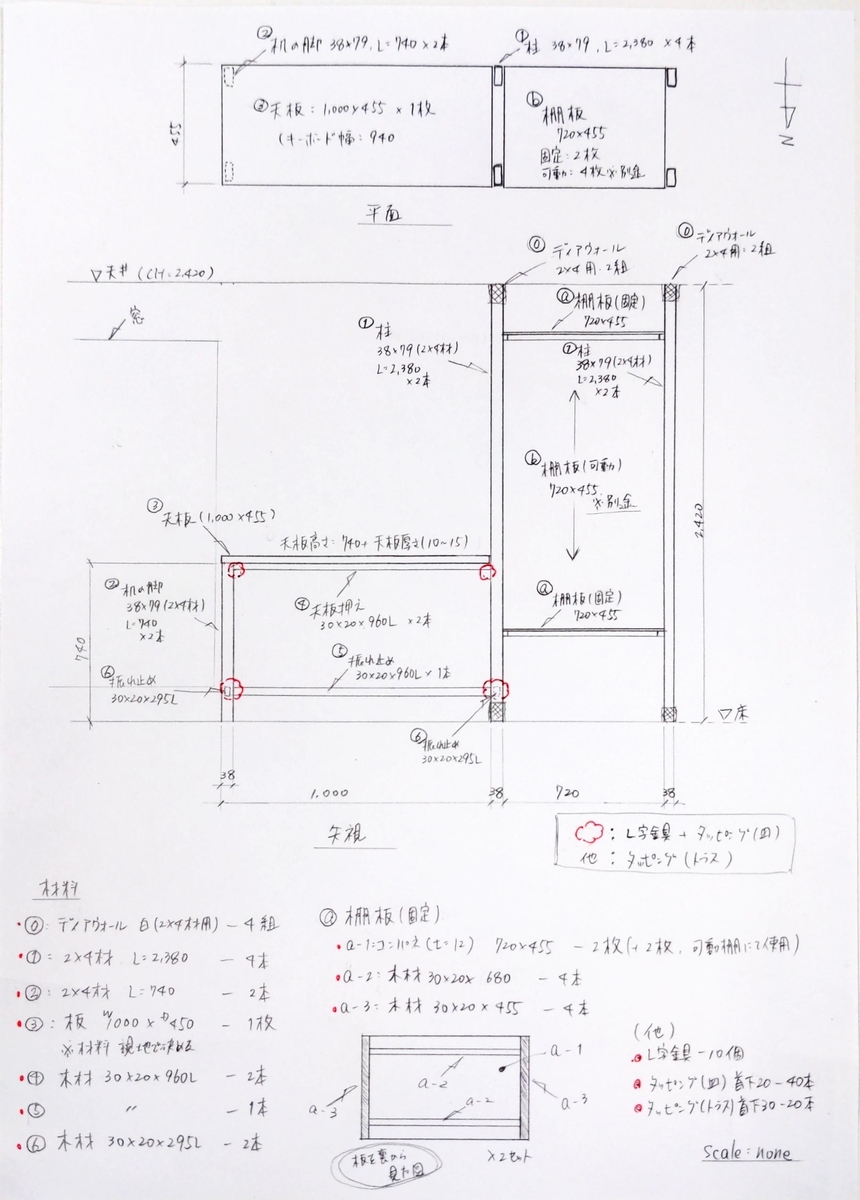 ② 机の脚 38×79, L=740×2本
① 柱 38×79, L=2,380 ×4本
455
③天板：1,000×455×1枚
(キーボード幅：940
ⓑ 棚板
720×455
固定：2枚
可動：4枚※別途
N
平面
⓪ ディアウォール
2×4用：2組
⓪ ディアウォール
2×4用：2組
▽天井 (CH=2,420)
窓
ⓐ棚板(固定)
720×455
①柱
38×79(2×4材)
L=2,380
×2本
①柱
38×79(2×4材)
L=2,380
×2本
ⓑ棚板(可動)
720×455
※別途
2,420
③天板(1,000×455)
天板高さ：740+天板厚さ(10~15)
②机の脚
38×79(2×4材)
L=740
×2本
④天板押え
30×20×960L ×2本
ⓐ棚板(固定)
720×455
740
⑤振れ止め
30×20×960L×1本
⑥振れ止め
30×20×295L
▽床
⑥振れ止め
30×20×295L
38
1,000
38
720
38
矢視
：L字金具+タッピング(皿)
他：タッピング(トラス)
材料
⓪：ディアウォール 白(2×4材用) ー 4組
①：2×4材 L=2,380 ー 4本
②：2×4材 L=740 ー 2本
③：板 W1000×D450 ー 1枚
※材料 現地で決める
④ 木材 30×20×960L ー 2本
⑤ 〃 ー 1本
⑥ 木材 30×20×295L ー 2本
ⓐ 棚板(固定)
a-1:コンパネ(t=12) 720×455 ー 2枚(+2枚、可動棚にて使用)
a-2：木材 30×20×680 ー 4本
a-3：木材 30×20×455 ー 4本
a-1
a-2
a-2
a-3
a-3
板を裏から
見た図
×2セット
(他)
L字金具ー10個
タッピング(皿)首下20ー40本
タッピング(トラス)首下30ー20本
Scale：none